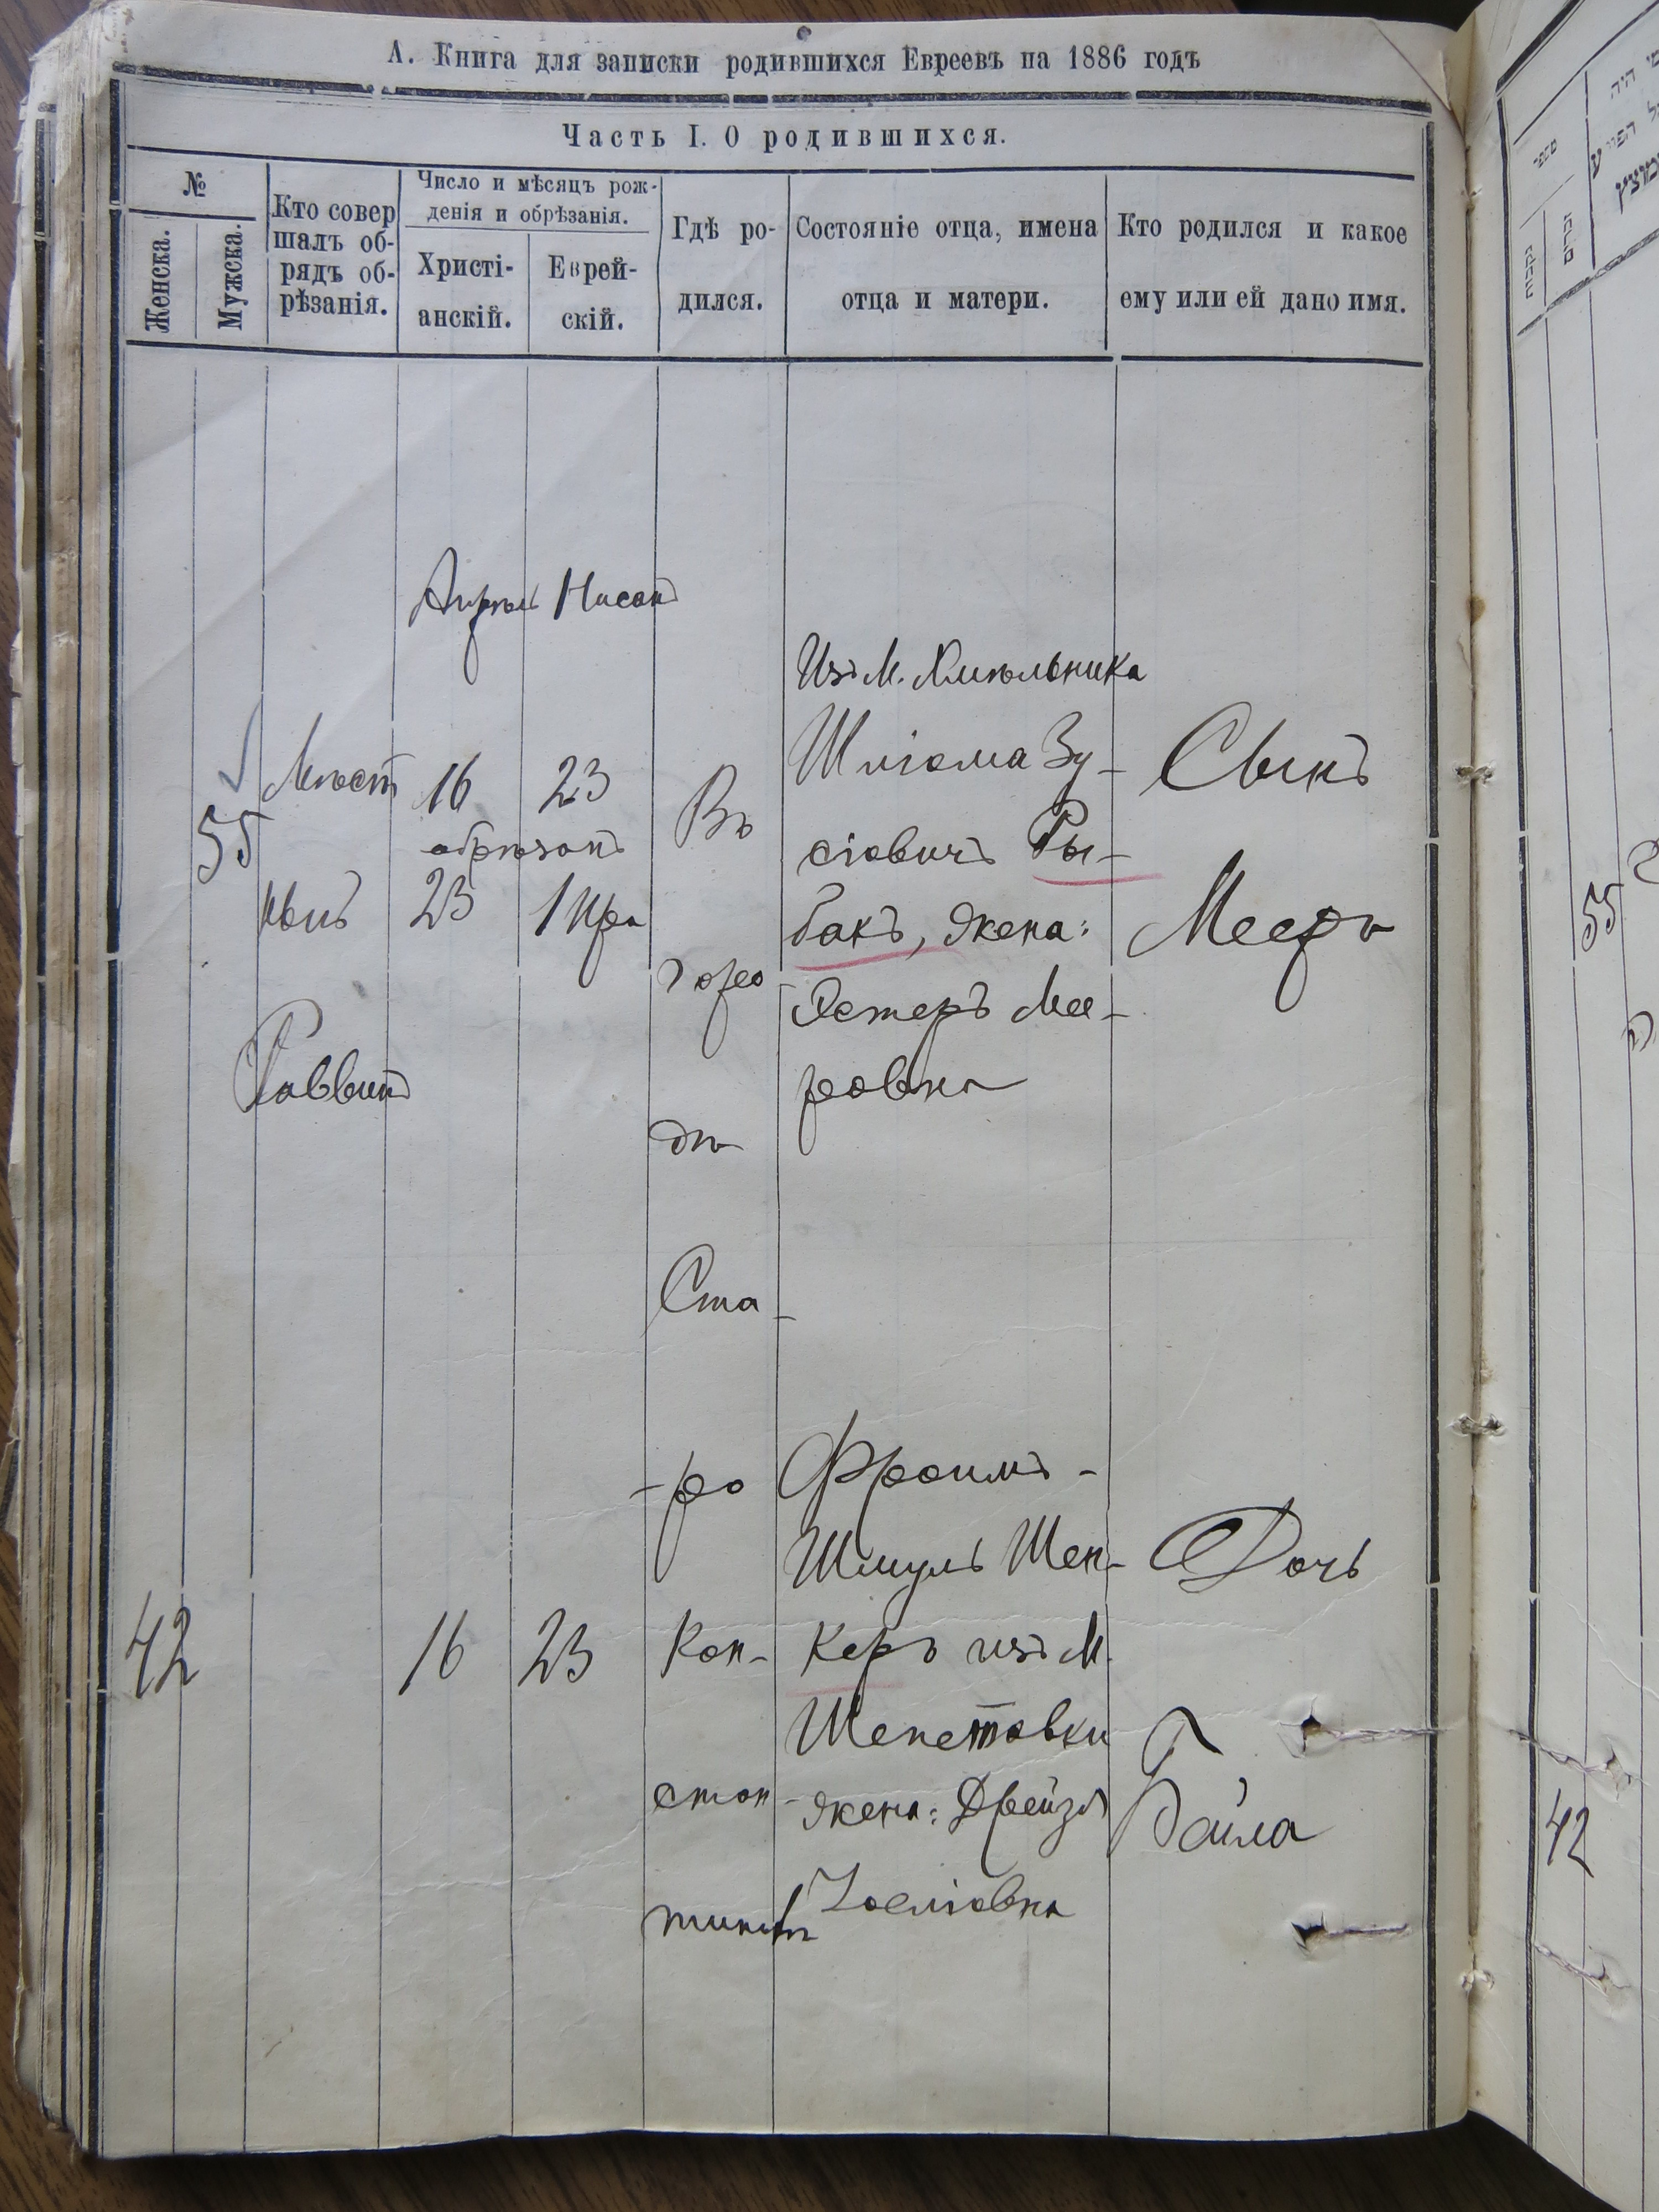 А. Книга для записки родившихся Евреевъ на 1886 годъ
Часть I. О родившихся.
№
Женска.
Мужска.
Кто совер
шалъ об-
рядъ об-
рѣзанія.
Число и мѣсяцъ рож-
денія и обрѣзанія.
Христі-
анскій.
Еврей-
скій.
Гдѣ ро-
дился.
Состояніе отца, имена
отца и матери.
Кто родился и какое
ему или ей дано имя.
Апрель Нисанъ
55
Мѣст
ный
Раввинъ
16
23
обрѣзанъ
23
1 Ира
Въ
горо
дѣ
Ста-
-ро
Кон-
стан-
тинов
Изъ М. Хмельника
Шліома Зу-
сіовичъ Ры-
бакъ, жена:
Эстеръ Мее-
ровна
Сынъ
Мееръ
42
16
23
Фроимъ-
Шмуль Шен-
керъ изъ М.
Шепетовки
жена: Дрейзя
Іосіовна
Дочь
Байла
55
42